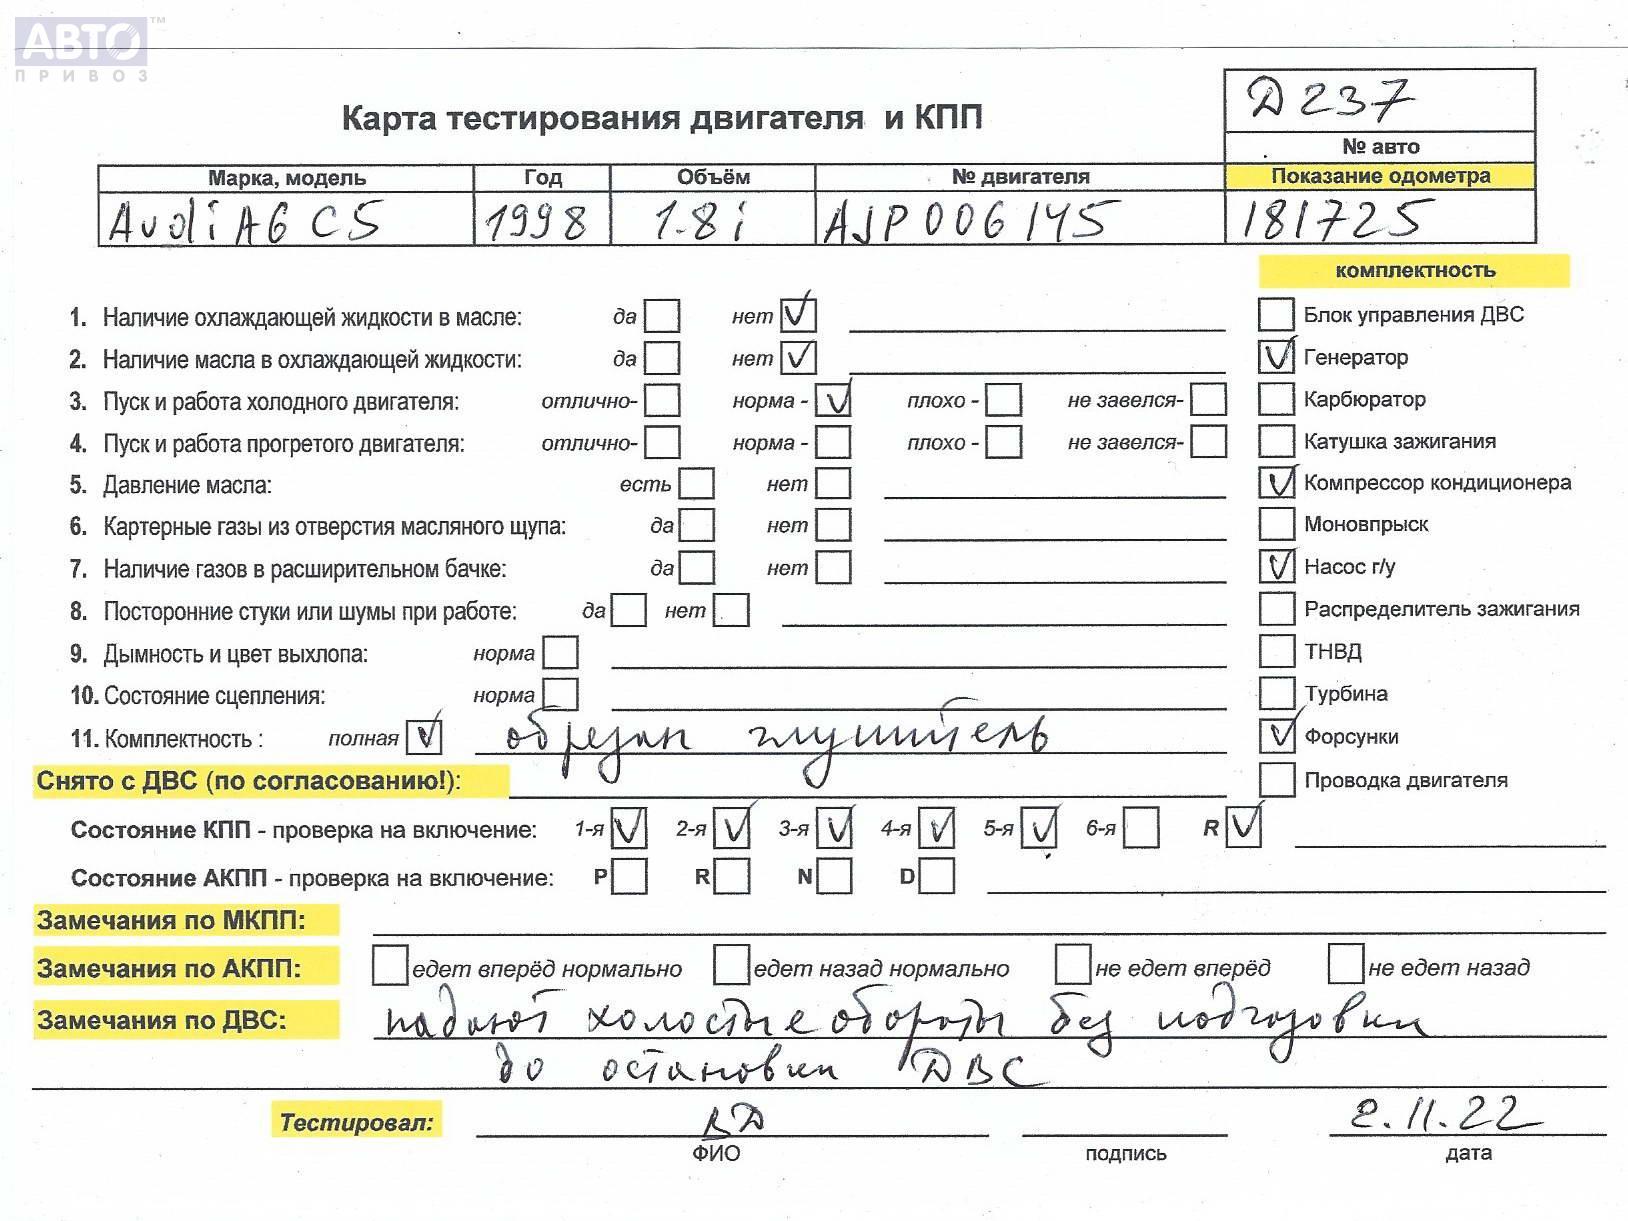 АВТО™
ПРИВОЗ
Д237
Карта тестирования двигателя и КПП
№ авто
Марка, модель Год Объём № двигателя Показание одометра
Audi A6 C5 1998 1.8i AJP006145 181725
комплектность
1. Наличие охлаждающей жидкости в масле: да нет ✓ Блок управления ДВС
2. Наличие масла в охлаждающей жидкости: да нет ✓ ✓ Генератор
3. Пуск и работа холодного двигателя: отлично- норма - ✓ плохо - не завелся- Карбюратор
4. Пуск и работа прогретого двигателя: отлично- норма - плохо - не завелся- Катушка зажигания
5. Давление масла: есть нет ✓ Компрессор кондиционера
6. Картерные газы из отверстия масляного щупа: да нет Моновпрыск
7. Наличие газов в расширительном бачке: да нет ✓ Насос г/у
8. Посторонние стуки или шумы при работе: да нет Распределитель зажигания
9. Дымность и цвет выхлопа: норма ТНВД
10. Состояние сцепления: норма Турбина
11. Комплектность : полная ✓ обрезан глушитель ✓ Форсунки
Снято с ДВС (по согласованию!): Проводка двигателя
Состояние КПП - проверка на включение: 1-я ✓ 2-я ✓ 3-я ✓ 4-я ✓ 5-я ✓ 6-я R ✓
Состояние АКПП - проверка на включение: P R N D
Замечания по МКПП:
Замечания по АКПП: едет вперёд нормально едет назад нормально не едет вперёд не едет назад
Замечания по ДВС: падают холостые обороты без подгазовки
до остановки ДВС
Тестировал: 2.11.22
ФИО подпись дата